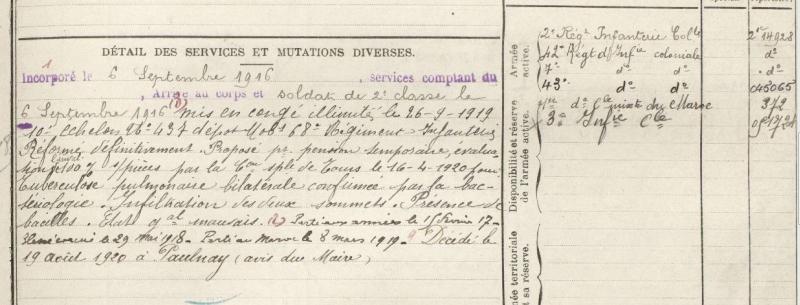 DÉTAIL DES SERVICES ET MUTATIONS DIVERSES.
1
Incorporé le 6 Septembre 1916, services comptant du
, Arrivé au corps et soldat de 2e classe le
6 Septembre 1916 (1) mis en congé illimité le 26-9-1919
10e Echelon N° 437 dépot Mob. 68e Régiment Infanterie
Réformé définitivement. Proposé pr. pension temporaire, évalua-
tion 100 % s/pièces par la Com sple de Tours le 16-4-1920 pour
tuberculose pulmonaire bilatérale confirmée par la bac-
tériologie. Infiltration des deux sommets. Présence de
bacilles. Etat gal mauvais. (1) Parti aux armées le 15 Février 17 -
le 29 Mai 1918 - Parti au Maroc le 8 mars 1919. Décédé le
19 août 1920 à Paulnay (avis du Maire)
Armée active.
Disponibilité et réserve de l'armée active.
ée territoriale
t sa réserve.
2e Régt Infanterie Colle
42e Régt d'Infie coloniale
7e do do
43e do do
1er do Cle mixte du Maroc
3e Infie Cle
2me 14928
do
do
045065
372